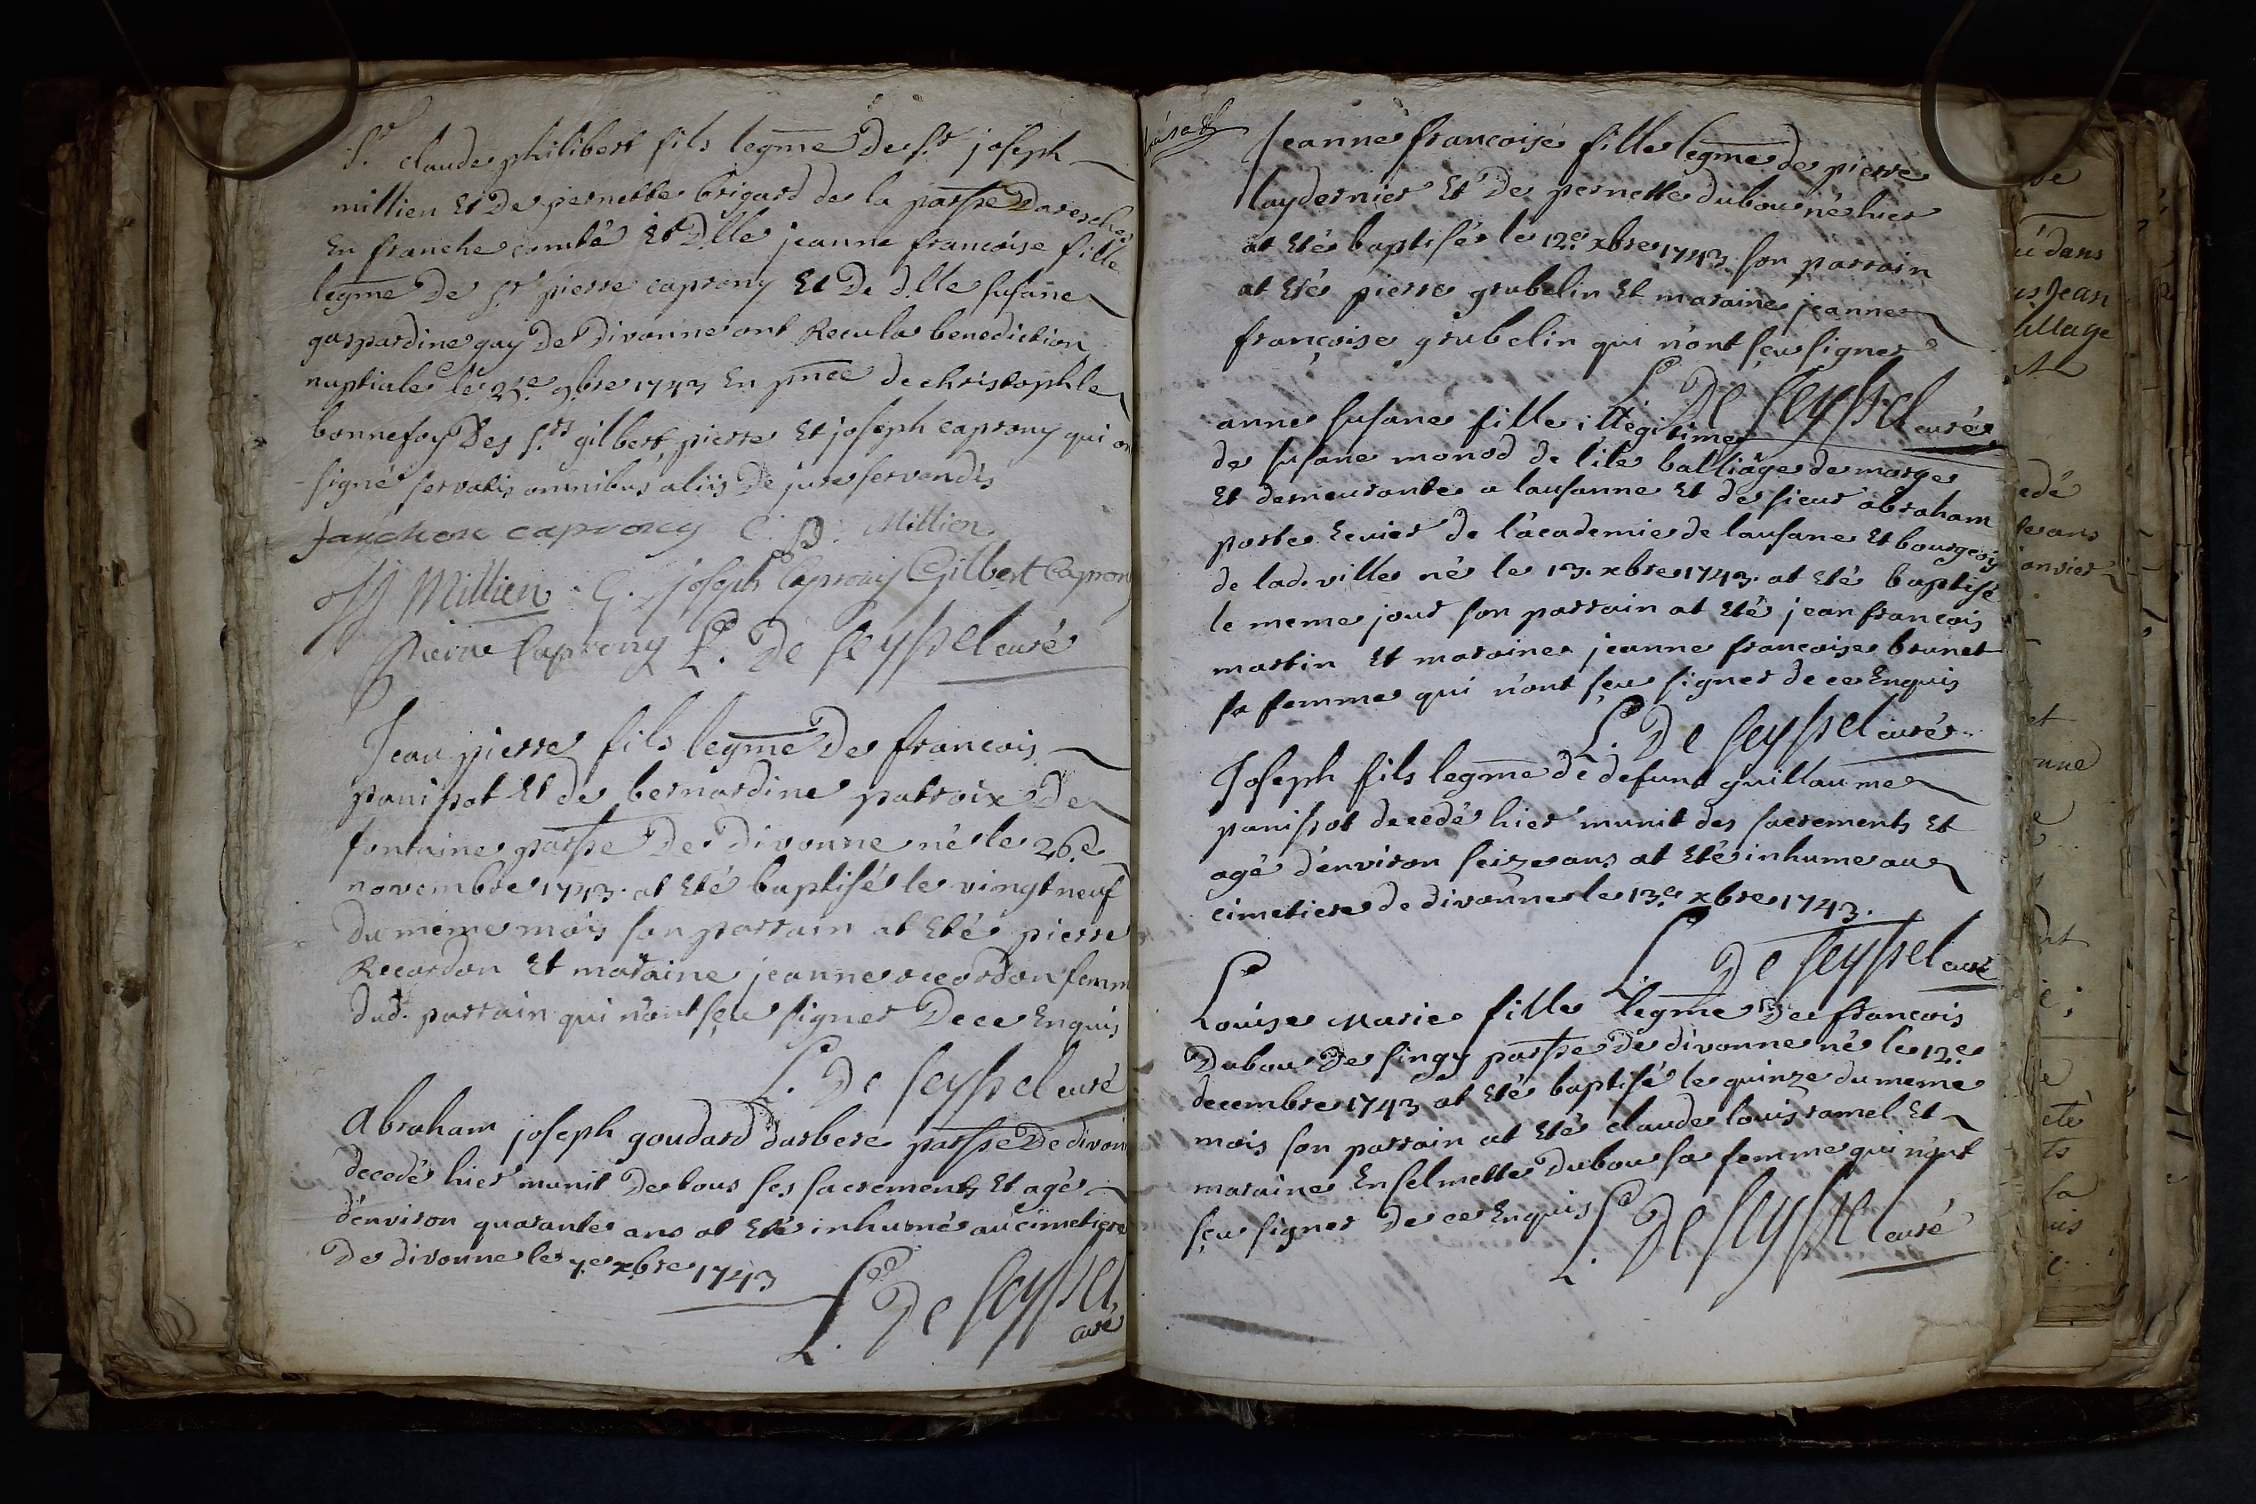 Sr. claude philibert fils legme De Sr. joseph
millien Et De pernette brigard de la parsse Dareche
En franche comté Et D.lle jeanne francoise fille
legme De Sr. pierre caprony Et De d.lle susane
gaspardine guy De Divonne ont Recu la benediction
nuptiale le 25.e 9.bre 1743 En pnce de christophle
bonnefoy Des S.rs gilbert, pierre Et joseph caprony qui on
signé servatis omnibus aliis De jure servendis
fanchon caprony C. P. Millien
JJ Millien G. joseph Caprony Gilbert Caprony
Pierre Caprony L. De seyssel curé
Jean pierre fils legme De francois
panissot Et de bernardine patroix De
fontaine parsse De Divonne né le 26.e
novembre 1743. at Eté baptisé le vingt neuf
du meme mois son parrain at Eté pierre
Recordon Et maraine jeanne recordon femm
dud. parrain qui n'ont sçu signer De ce Enquis
L. De seyssel curé
Abraham joseph goudard darbere parsse De divon
decedé hier munit De tous ses sacrements Et agé
d'environ quarante ans at Eté inhumé au cimetiere
De divonne le 7.e xbre 1743
L. De seyssel
curé
Jeanne francoise fille legme de pierre
laydernier Et De pernette dubou né hier
at Eté baptisé le 12.e xbre 1743 son parrain
at Eté pierre grubelin Et maraine jeanne
françoise grubelin qui n'ont sçu signer
L. De seyssel curé
anne susane fille illegitime
de susane monod de l'ile balliage de morge
Et demeurante a lausanne Et de sieur abraham
porte Ecuier de l'academie de lausane Et bourgeois
de lad. ville né le 13. xbre 1743. at Eté baptisé
le meme jour son parrain at Eté jean francois
martin Et maraine jeanne francoise brunet
sa femme qui n'ont sçu signer de ce Enquis
L. De seyssel curé
Joseph fils legme de defunt guillaume
panissot decedé hier munit des sacrements Et
agé d'environ seize ans at Eté inhume au
cimetiere de divonne le 13.e xbre 1743.
L. De seyssel curé
Louise Marie fille legme De francois
Dubou De singy parsse De divonne né le 12.e
decembre 1743 at Eté baptisé le quinze du meme
mois son parrain at Eté claude louis ramel Et
maraine Enselmette Dubou sa femme qui n'ont
sçu signer De ce Enquis L. De seyssel curé